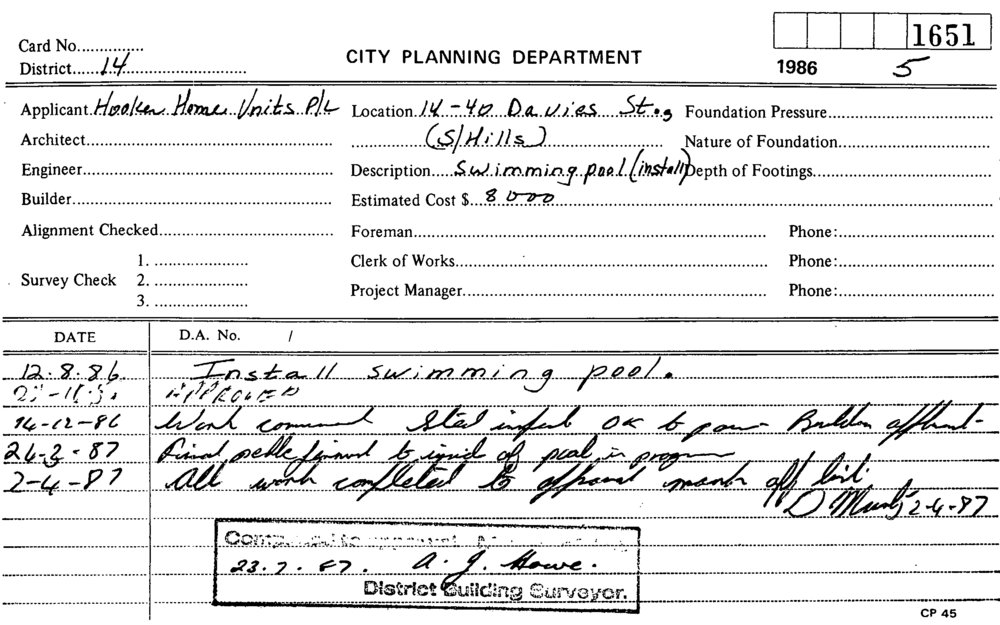 1651
Card No...............
District......14...........................
CITY PLANNING DEPARTMENT
1986 5
Applicant Hooker Home Units P/L Location 14-40 Davies St., Foundation Pressure
Architect (S/Hills) Nature of Foundation
Engineer Description Swimming pool (install) Depth of Footings
Builder Estimated Cost $ 8000
Alignment Checked Foreman Phone:
Survey Check 1. Clerk of Works Phone:
2.
3. Project Manager Phone:
DATE D.A. No. /
12.8.86 Install swimming pool.
APPROVED
14-12-86 Work Steel OK to pour Builder
24-3-87 Final pebble to of pool in
2-4-87 All work completed to approval mark off list
D 2-4-87
to approval
23.7.87. A. J. Howe.
District Building Surveyor.
CP 45